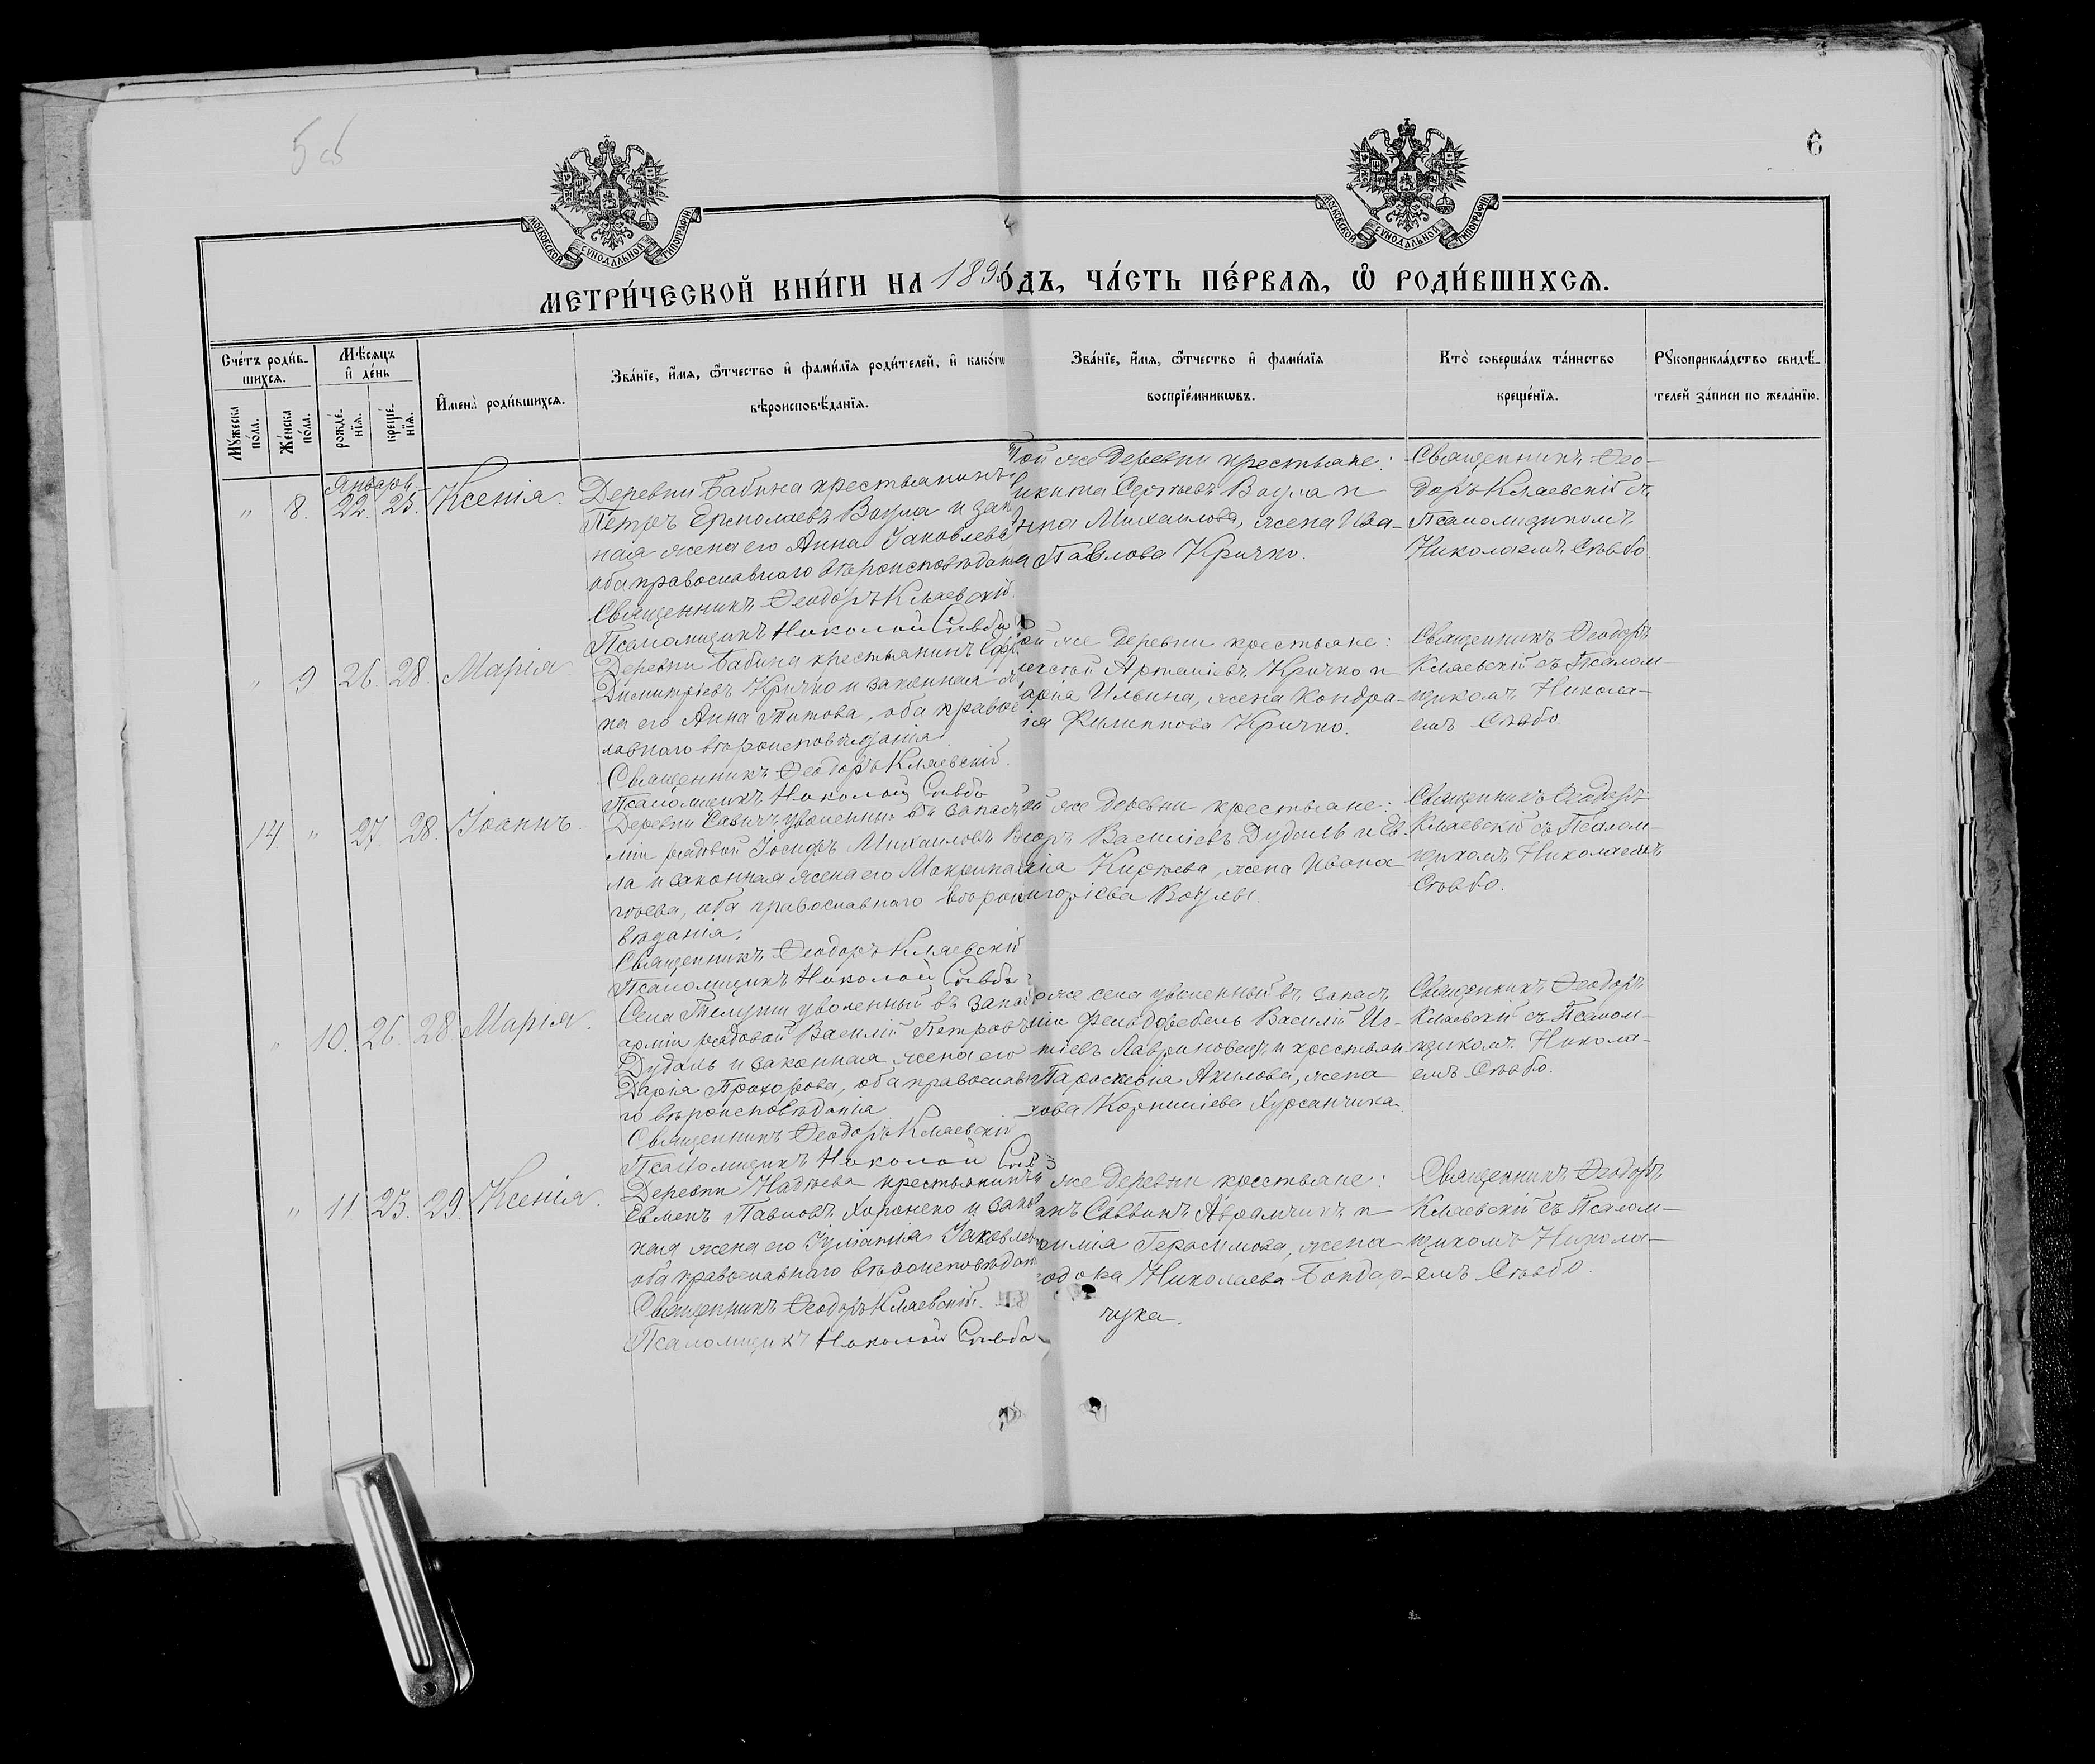 5 об
6
МОСКОВСКОЙ СУНОДАЛЬНОЙ ТИПОГРАФІИ
МОСКОВСКОЙ СУНОДАЛЬНОЙ ТИПОГРАФІИ
МЕТРИ́ЧЕСКОЙ КНИ́ГИ НА 189 О́ДЪ, ЧА́СТЬ ПЕ́РВАѦ, Ѡ҆ РОДИ́ВШИХСѦ.
Сче́тъ роди́в-
шихсѧ.
Мꙋ́жеска по́ла.
Же́нска по́ла.
Мѣ́сѧцъ
и҆ де́нь
рожде́-
нїѧ.
креще́-
нїѧ.
И҆мена̀ роди́вшихсѧ.
Зва́нїе, и҆́мѧ, ѻ҆́тчество и҆ фами́лїѧ роди́телей, и҆ како́гѡ
вѣроисповѣ́данїѧ.
Зва́нїе, и҆́мѧ, ѻ҆́тчество и҆ фами́лїѧ
воспрїе́мникѡвъ.
Кто̀ соверша́лъ та́инство
креще́нїѧ.
Рꙋкоприкла́дство свидѣ́-
телей за́писи по жела́нїю.
Январь
" 8. 22. 25. Ксенія.
Деревни Бабина крестьянинъ
Петръ Ермолаевъ Воула и зак
ная жена его Анна Іаковлева
оба православнаго вѣроисповѣдан
Священникъ Ѳеодоръ Кляевскій.
Псаломщикъ Николай Сльбо
Той же деревни крестьяне:
икита Сергѣевъ Воула и
нна Михаилова, жена Ива-
а Павлова Кричко.
Священникъ Ѳео-
доръ Кляевскій съ
Псаломщикомъ
Николаемъ Сльбо.
" 9 26. 28. Марія
Деревни Бабина крестьянинъ
Димитріевъ Кричко и законная
на его Анна Титова, оба правос
лавнаго вѣроисповѣданія.
Священникъ Ѳеодоръ Кляевскій.
Псаломщикъ Николай Сльбо
ой же деревни крестьяне:
Кричко и
арія Ильина, жена Кондра-
ія Филиппова Кричко.
Священникъ Ѳеодоръ
Кляевскій съ Псалом-
щикомъ Никола-
емъ Сльбо
14. " 27. 28. Іоаннъ.
Деревни Савичъ уволенный въ запасъ
міи рядовой Іосифъ Михаиловъ В
ла и законная жена его Макрина
гѣева, оба православнаго вѣроис
вѣданія.
Священникъ Ѳеодоръ Кляевскій
Псаломщикъ Николай Сльбо
й же деревни крестьяне:
Василіевъ Дудаль и Ев-
нія Сергѣева, жена Ивана
игоріева Воулы.
Священникъ Ѳеодоръ
Кляевскій съ Псалом-
щикомъ Николаемъ
Сльбо.
" 10. 26. 28 Марія.
Села Телуши уволенный въ запас
арміи рядовой Василій Петровъ
Дудаль и законная жена его
Дарія Прохорова, оба православн
го вѣроисповѣданія.
Священникъ Ѳеодоръ Кляевскій
Псаломщикъ Николай Сльб
оже села уволенный въ запасъ
міи фельдфебель Василій Иг-
тіевъ Лавриновецъ и крестьян
Параскевія Акилова, жена
кова Корниліева Хурсанчика.
Священникъ Ѳеодоръ
Кляевскій съ Псалом-
щикомъ Никола-
емъ Сльбо.
" 11 23. 29. Ксенія.
Деревни Надѣева крестьянинъ
Евменъ Павловъ Хоронеко и зако
ная жена его Іуліанія Іаковлева
оба православнаго вѣроисповѣдан
Священникъ Ѳеодоръ Кляевскій.
Псаломщикъ Николай Сльбо
же деревни крестьяне:
Саввинъ Абрамчикъ и
Герасимова, жена
Николаева Бондар-
чука.
Священникъ Ѳеодоръ
Кляевскій съ Псалом-
щикомъ Никола-
емъ Сльбо.